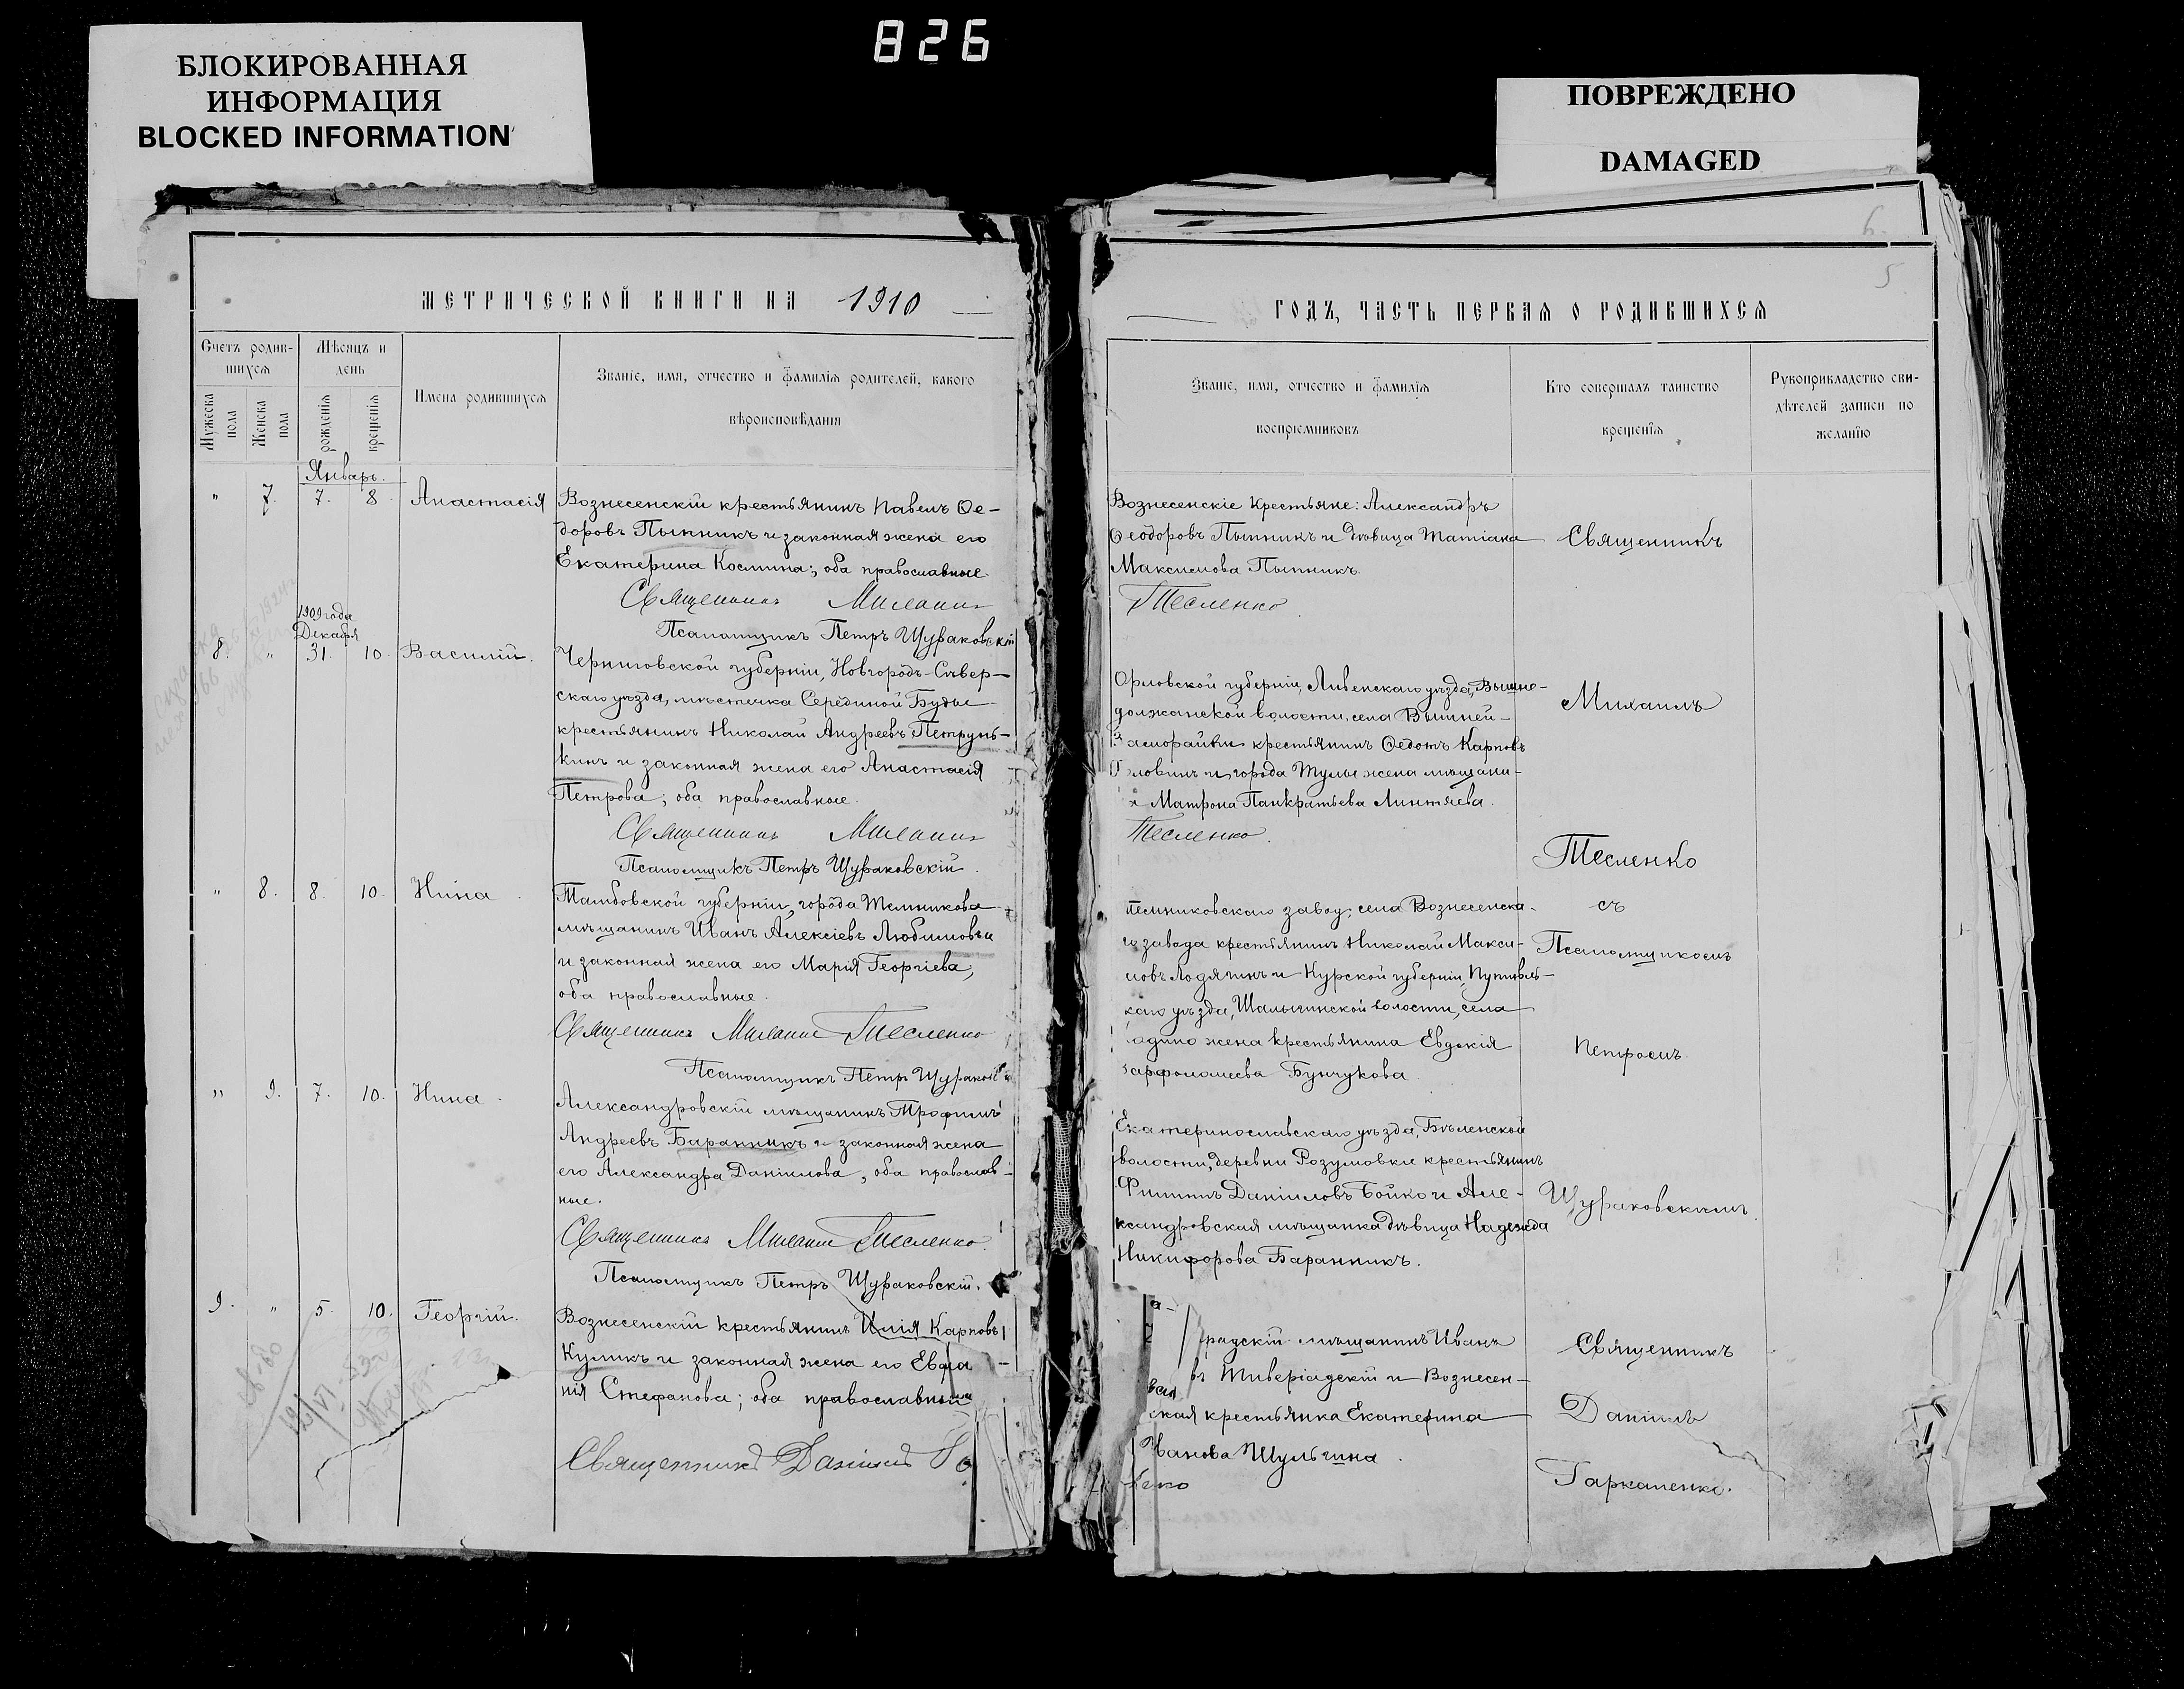 826
БЛОКИРОВАННАЯ
ИНФОРМАЦИЯ
BLOCKED INFORMATION
ПОВРЕЖДЕНО
DAMAGED
МЕТРИЧЕСКОЙ КНИГИ НА 1910
Счетъ родив-
шихся
Мѣсяцъ и
день
Мужеска
пола
Женска
пола
рожденія
крещенія
Имена родившихся
Званіе, имя, отчество и фамилія родителей, какого
вѣроисповѣданія
Январь.
" 7. 7. 8 Анастасія
Вознесенскій крестьянинъ Павелъ Ѳе-
доровъ Пыпникъ и законная жена его
Екатерина Космина; оба православные.
Священникъ Михаилъ
Псаломщикъ Петръ Щураковскій
1909 года
Декабря
8. " 31. 10. Василій.
Черниговской губерніи, Новгородъ-Сѣвер-
скаго уѣзда, мѣстечка Середино́й Буды
крестьянинъ Николай Андреевъ Петрунь-
кинъ и законная жена его Анастасія
Петрова; оба православные.
Священникъ Михаилъ
Псаломщикъ Петръ Щураковскій.
" 8. 8. 10. Нина
Тамбовской губерніи, города Темникова
мѣщанинъ Иванъ Алексіевъ Любимовъ и
и законная жена его Марія Георгіева,
оба православные.
Священникъ Михаилъ Тесленко
Псаломщикъ Петръ Щураковскій
" 9. 7. 10. Нина
Александровскій мѣщанинъ Трофимъ
Андреевъ Баранникъ и законная жена
его Александра Даніилова, оба православ-
ные.
Священникъ Михаилъ Тесленко.
Псаломщикъ Петръ Щураковскій.
9. " 5. 10. Георгій.
Вознесенскій крестьянинъ Илія Карповъ
Куликъ и законная жена его Евфа
нія Стефанова; оба православные
Священникъ Даніилъ
6
5
ГОДЪ, ЧАСТЬ ПЕРВАЯ О РОДИВШИХСЯ
Званіе, имя, отчество и фамилія
воспріемниковъ
Кто совершалъ таинство
крещенія
Рукоприкладство сви-
дѣтелей записи по
желанію
Вознесенскіе крестьяне: Александръ
Ѳеодоровъ Пыпникъ и дѣвица Татіана
Максимова Пыпникъ.
Тесленко.
Орловской губерніи, Ливенскаго уѣзда, Вышне-
должанской волости, села Вышней-
крестьянинъ Ѳедотъ Карповъ
и города Тулы жена мѣщани-
Матрона Панкратьева Линтяева.
Тесленко.
темниковскаго завод, села Вознесенска-
го завода крестьянинъ Николай Макси-
мовъ Лодягинъ и Курской губерніи, Путивль-
каго уѣзда, Шалыгинской волости, села
жена крестьянина Евдокія
арфоломеева Бунчукова.
Екатеринославскаго уѣзда, Бѣленской
волости, деревни Розумовки крестьянинъ
Филиппъ Даніиловъ Бойко и Але-
ксандровская мѣщанка дѣвица Надежда
Никифорова Баранникъ.
градскій мѣщанинъ Иванъ
въ Тиверіадскій и Вознесен-
ская крестьянка Екатерина
Иванова Шульгина.
енко
Священникъ
Михаилъ
Тесленко
съ
Псаломщикомъ
Петромъ
Щураковскимъ.
Священникъ
Даніилъ
Гаркаленко.